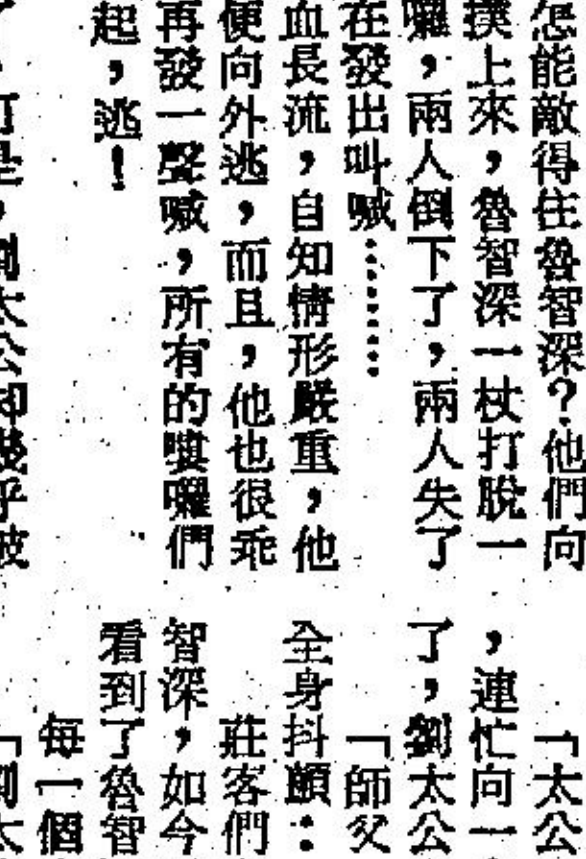 怎能敵得住魯智深？他們向
撲上來，魯智深一杖打脫一
囉，兩人倒下了，兩人失了
在發出叫喊⋯⋯
血長流，自知情形嚴重，他
便向外逃，而且，他也很乖
再發一聲喊，所有的嘍囉們
起，逃！
，可是，劉太公却幾乎被
「太公
，連忙向一
了，劉太公
「師父
全身抖顫：
莊客們
智深，如今
看到了魯智
每一個
「劉太